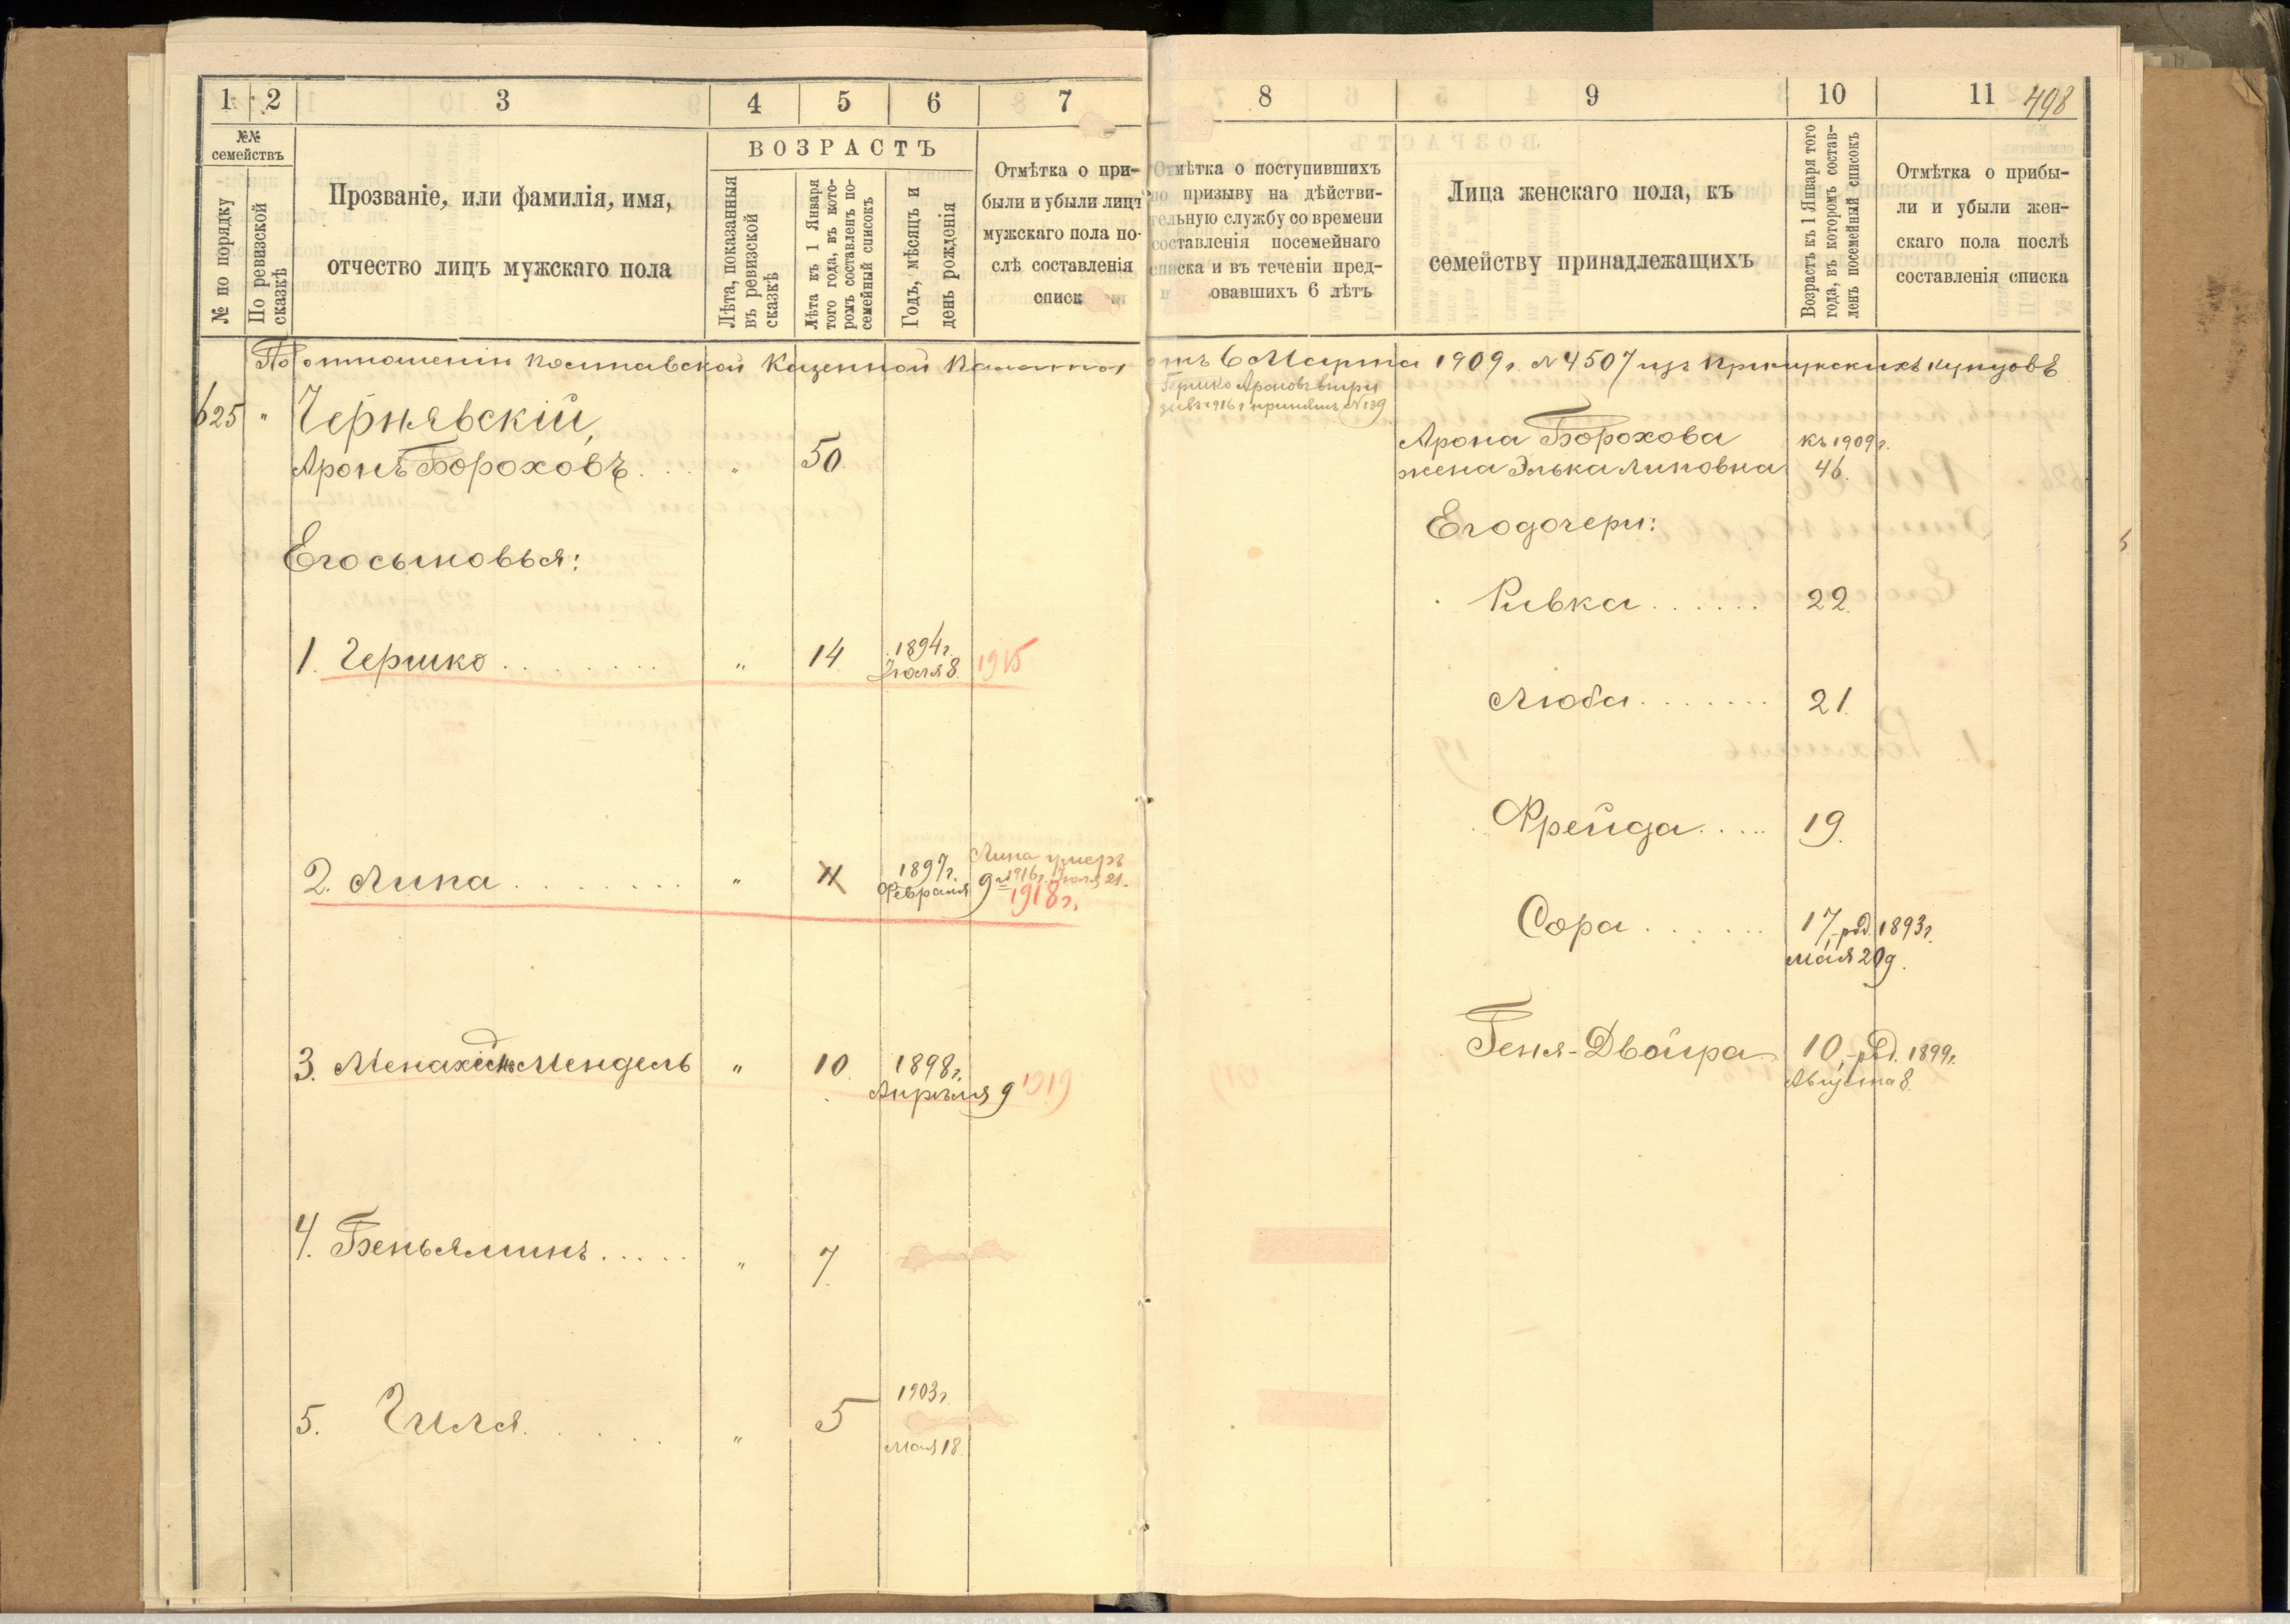 1 2 3 4 5 6 7
№№ семействъ
№ по порядку
По ревизской сказкѣ
Прозваніе, или фамилія, имя,
отчество лицъ мужскаго пола
ВОЗРАСТЪ
Лѣта, показанныя
въ ревизской
сказкѣ
Лѣта къ 1 Января
того года, въ кото-
ромъ составленъ по-
семейный списокъ
Годъ, мѣсяцъ и
день рожденія
Отмѣтка о при-
были и убыли лицъ
мужскаго пола по-
слѣ составленія
списк
8 9 10 11 498
Отмѣтка о поступившихъ
по призыву на дѣйстви-
тельную службу со времени
составленія посемейнаго
списка и въ теченіи пред-
овавшихъ 6 лѣтъ
Лица женскаго пола, къ
семейству принадлежащихъ
Возрастъ къ 1 Января того
года, въ которомъ состав-
ленъ посемейный списокъ
Отмѣтка о прибы-
ли и убыли жен-
скаго пола послѣ
составленія списка
По отношенію Полтавской Казенной Палаты отъ 6 Марта 1909 г. № 4507 изъ Прилукскихъ купцовъ
625 " Чернявскій,
Аронъ Бороховъ . . . " 50.
Его сыновья:
1. Гершко . . . . . . . . " 14 1894 г. Іюля 8. 1915
2. Липа . . . . . . . . " 11 1897 г. Февраля 9
Липа умеръ
1916 г. Іюля 21.
1918 г.
3. Менахемъ Мендель " 10 1898 г. Апрѣля 9 1919
4. Беньяминъ . . . . . " 7.
5. Гиля . . . . . " 5 1903 г.
Мая 18.
Гершко Ароновъ въ при
зывъ 1916 г. принятъ, № 139
Арона Борохова къ 1909 г.
жена Элька Липовна 46.
Его дочери:
Ривка . . . . . . 22.
Люба . . . . . . . 21.
Фрейда . . . . . 19.
Сора . . . . . . . 17, род. 1893 г.
мая 20 д.
Геня-Двойра 10, род. 1899 г.
Августа 8.